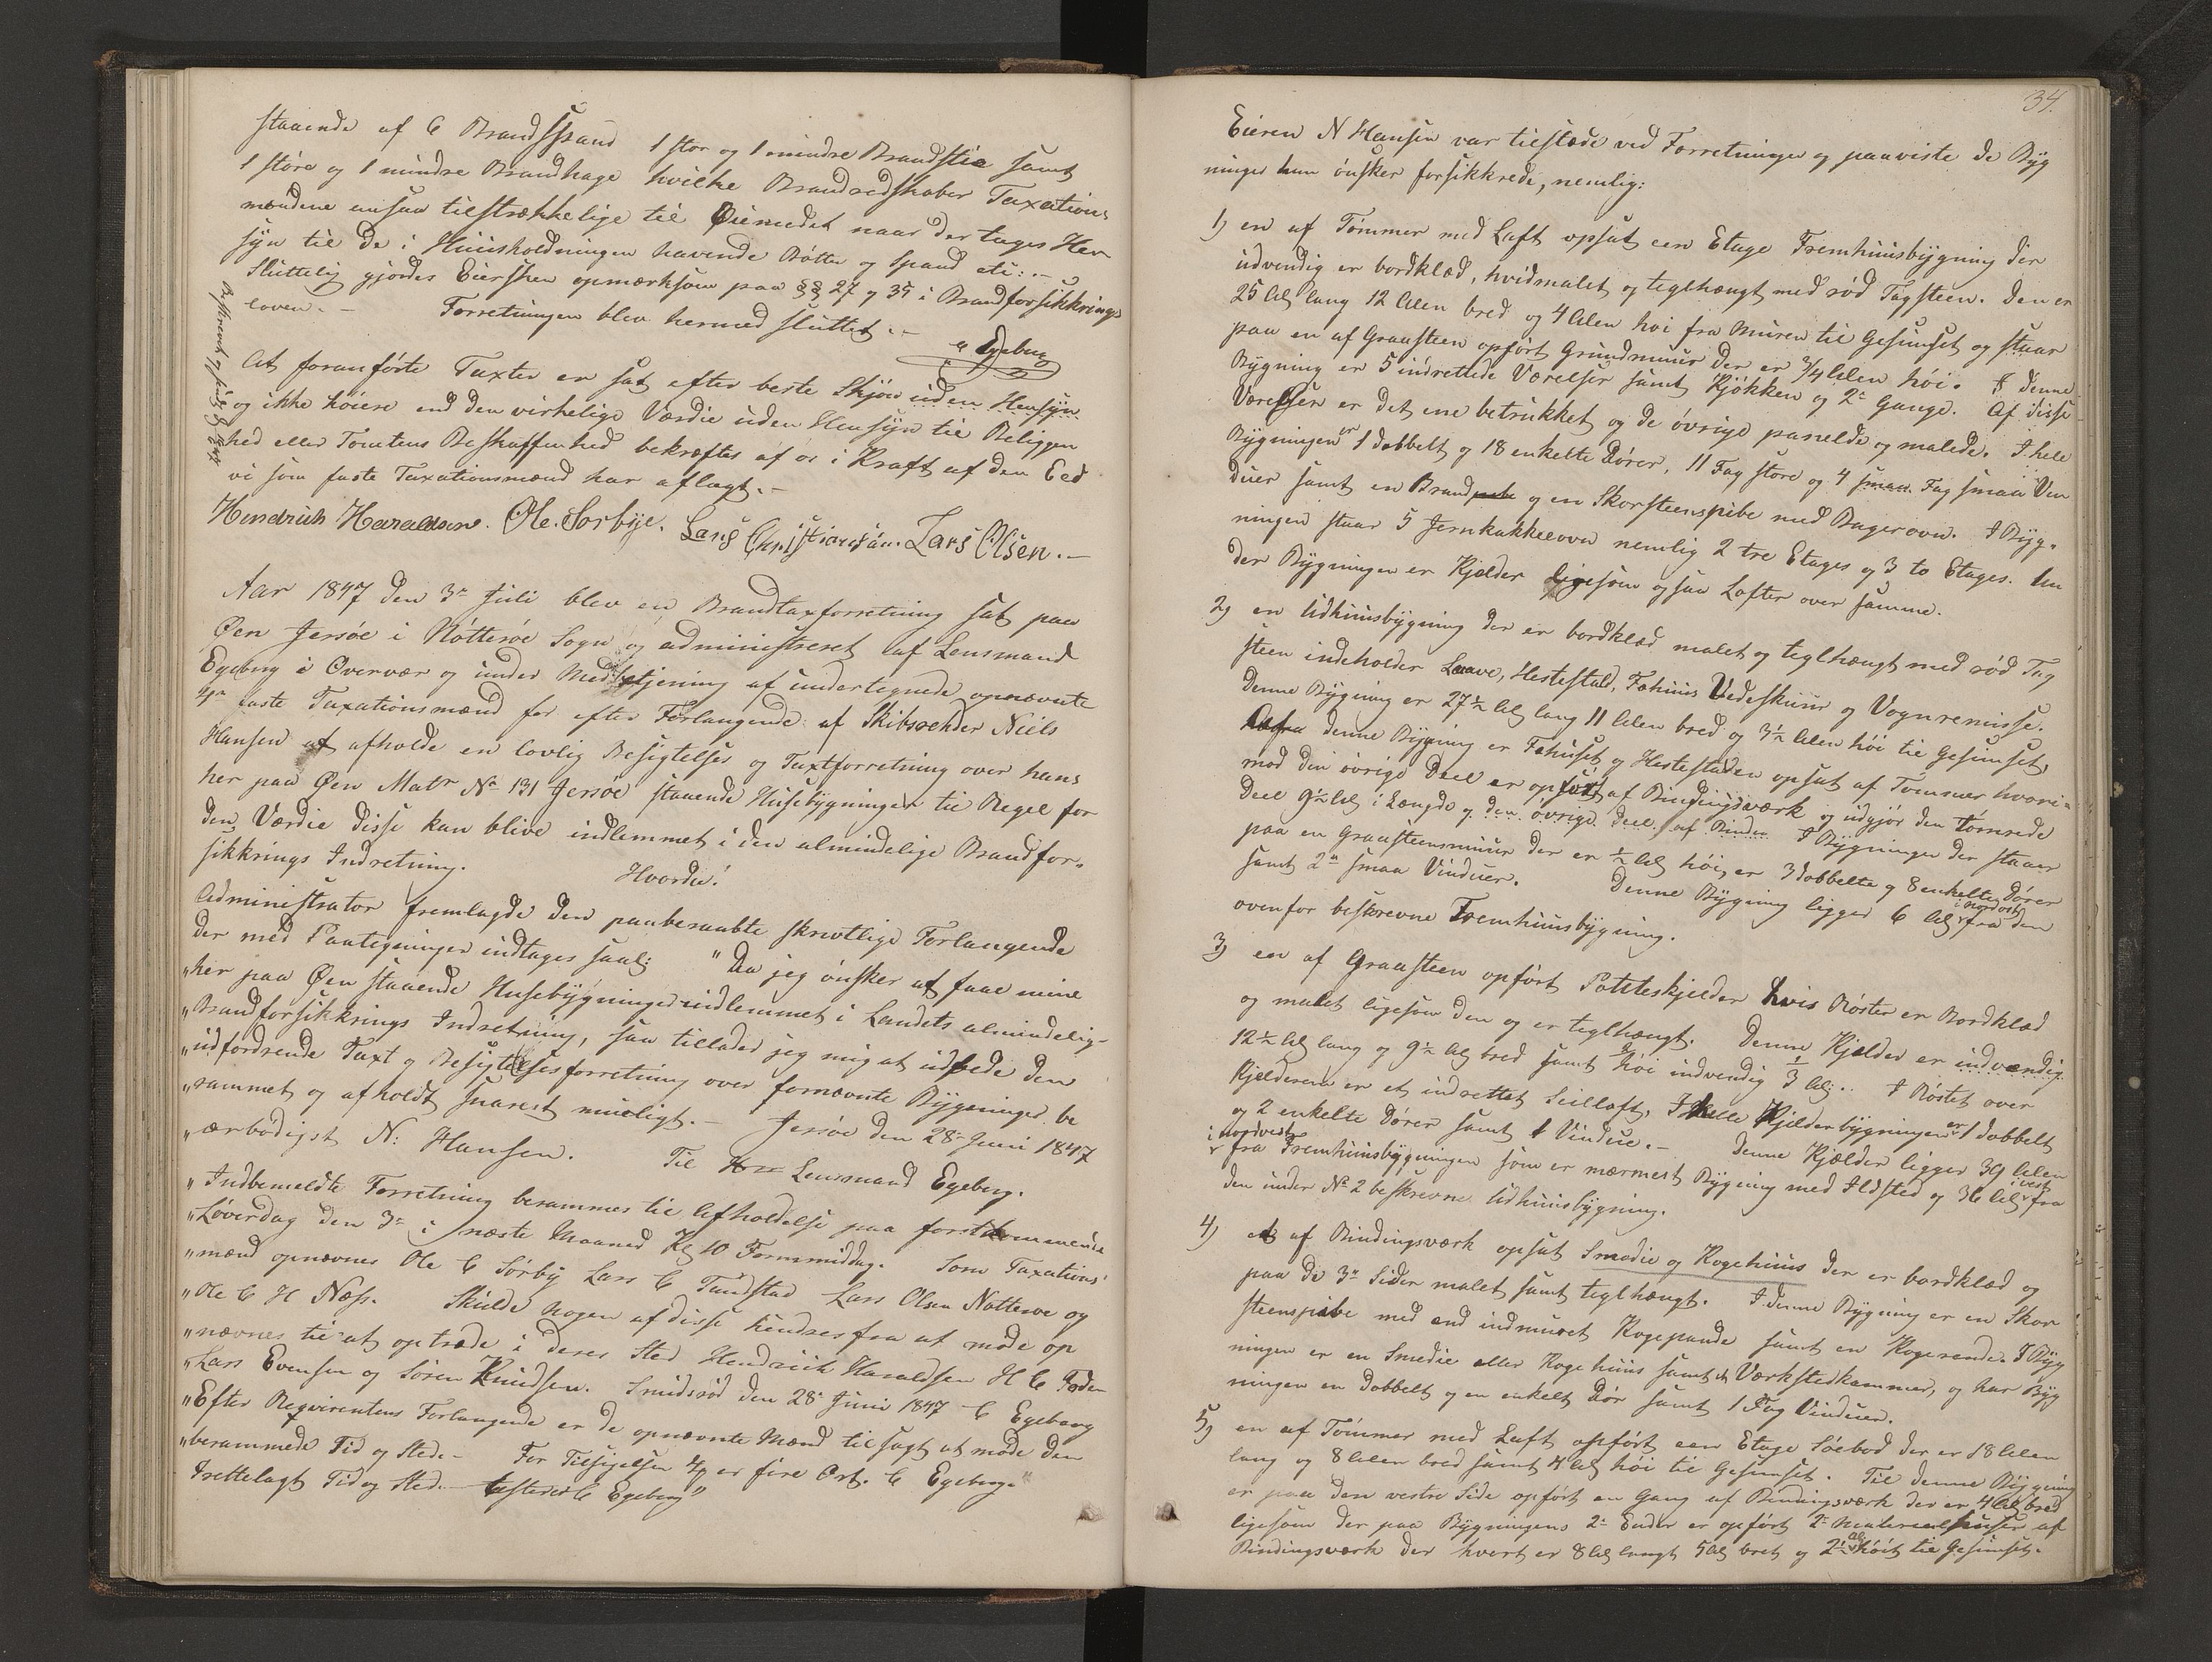 staaende af 6 Brandspand 1 stor og 1 mindre Brandstie samt
1 store og 1 mindre Brandhage hvilke Brandredskaber Taxations
mændene ansaa tilstrækkelige til Øiemedet naar der tages Hen
syn til de i Huusholdningen havende Bøtter og Spand etc: .-
Sluttelig gjordes Eiersken opmærksom paa §§ 27 og 35 i Brandforsikkrings
loven. - Forretningen blev hermed sluttet. -
Egeberg
At foranførte Taxter er sat efter beste Skjøn uden Hensyn
og ikke høiere end den virkelige Værdie uden Hensyn til Beliggen
hed eller Tomtens Beskaffenhed bekræftes af os i Kraft af den Eed
vi som faste Taxationsmænd har aflagt. -
Hendrich Haraldsen. Ole. Sørbye. Lars Christiansen. Lars Olsen. -
Aar 1847 den 3die Juli blev en Brandtaxforretning sat paa
Øen Jersøe i Nøtterøe Sogn og administreret af Lensmand
Egeberg i Overvær og under Medbetjening af undertegnede opnævnte
4re faste Taxationsmænd for efter Forlangende af Skibsrehder Niels
Hansen at afholde en lovlig Besigtelses og Taxtforretning over hans
her paa Øen Matr No 131 Jersøe staaende Husebygninger til Regel for
den Værdie disse kan blive indlemmet i den almindelige Brandfor-
sikkrings Indretning. Hvorda!
Administrator fremlagde den paaberaabte skrivtlige Forlangende
der med Paategninger indtages saal: "Da jeg ønsker at faae mine
"her paa Øen staaende Husebygninger indlemmet i Landets almindelig-
"Brandforsikkrings Indretning, saa tillader jeg mig at udbede den
"udfordrende Taxt og Besigtelsesforretning over fornævnte Bygninger be
"rammet og afholdt snarest mueligt. - Jersøe den 28de Juni 1847
"ærbødigst N: Hansen. Til Hrr Lensmand Egeberg.
"Indbemeldte Forretning berammes til Afholdelse paa førstkommende
"Løverdag den 3die i næste Maaned Kl 10 Formmiddag. Som Taxations
"mænd opnævnes Ole C Sørby Lars C Tandstad Lars Olsen Nøtterøe og
"Ole C H Næss. Skulde nogen af disse hindres fra at møde op
"nævnes til at optræde i deres Sted Hendrich Haraldsen H C Foden
"Lars Evensen og Søren Knudsen. Smidsrød den 28de Juni 1847 C Egeberg
"Efter Reqvirentens Forlangende er de opnævnte Mænd tilsagt at møde den
"berammede Tid og Sted. - For Tilsigelsen er fire Ort. C Egeberg"
Irettelagt Tid og Sted. - testerer C Egeberg"
34.
Eieren N Hansen var tilstæde ved Forretningen og paaviste de Byg
ninger han ønsker forsikkrede, nemlig:
1) en af Tømmer med Laft opsat een Etage Fremhuusbygning der
udvendig er bordklæd, hvidmalet og teglhængt med rød Tagsteen. Den er
25 Al lang 12 Alen bred og 4 Alen høi fra Muren til Gesimset og staar
paa en af Graasteen opført Grundmuur der er 3/4 Alen høi. I denne
Bygning er 5 indrettede Værelser samt Kjøkken og 2de Gange. Af disse
Værelser er det ene betrukket og de øvrige panelede og malede. I hele
Bygningen er 1 dobbelt og 18 enkelte Dører, 11 Fag store og 4 smaa Fag smaa Vin
duer samt en Brand og en Skorsteenspibe med Bagerovn. I Byg-
ningen staar 5 Jernkakkelovn nemlig 2 tre Etages og 3 to Etages. Un
der Bygningen er Kjelder ligesom ogsaa Lofter over samme.
2) en Udhuusbygning der er bordklæd malet og teglhængt med rød Tag
steen indeholder Laave, Hestestald, Fæhuus Vedeskuur og Vognremisse.
Denne Bygning er 27½ Al lang 11 Alen bred og 3½ Alen høi til Gesimset,
denne Bygning er Fæhuset og Hestestalden opsat af Tømmer hvori-
mod den øvrige Deel er opført af Bindingsværk og udgjør den tømrede
Deel 9½ Al i Længde og den øvrige Deel af Bindin I Bygningen der staar
paa en Graasteensmuur der er ½ Al høi, er 3 dobbelte og 8 enkelte Dører
samt 2de smaa Vinduer. Denne Bygning ligger 6 Al i nordost fra den
ovenfor beskrevne Fremhuusbygning.
3) en af Graasteen opført Poteteskjelder hvis Røster er Bordklæd
og malet ligesom den og er teglhængt. Denne Kjelder er indvendig
12½ Al lang og 9½ Al bred samt høi indvendig 3 Al:. I Røstet over
Kjelderen er et indrettet Seilloft, I hele Kjelderbygningen er 1 dobbelt
og 2 enkelte Dører samt 1 Vindue. - Denne Kjelder ligger 39 Alen
i nordvest fra Fremhuusbygningen som er nærmest Bygning med Ildsted og 36 Al i vest fra
den under No 2 beskrevne Udhuusbygning.
4) et af Bindingsværk opsat Smedie og Kogehuus der er bordklæd og
paa de 3de Sider malet samt teglhængt. I denne Bygning er en Skor
steenspibe med end indmuret Kogepande samt en Kogerende. I Byg
ningen er en Smedie eller Kogehuus samt et Værkstedkammer, og har Byg
ningen en dobbelt og en enkelt Dør samt 1 Fag Vinduer.
5) en af Tømmer med Laft opført een Etage Søebod der er 18 Alen
lang og 8 Alen bred samt 4 Al høi til Gesimset. Til denne Bygning
er paa den vestre Side opført en Gang af Bindingsværk der er 4 Al bred
ligesom der paa Bygningens 2de Ender er opført 2de Materialhuser af
Bindingsværk der hvert er 8 Al langt 5 Al bret og 2½ Al høit til Gesimset.